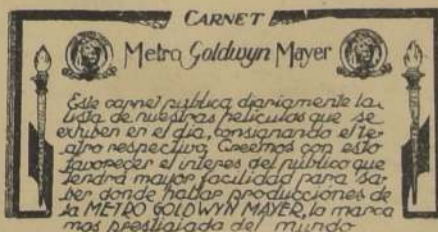 CARNET
Metro Goldwyn Mayer
Este carnet publica diariamente la
lista de nuestras peliculas que se
exhiben en el dia, consignando el te-
atro respectivo. Creemos con esto
favorecer el interes del publico que
tendrá mayor facilidad para sa-
ber donde hallar producciones de
la METRO GOLDWYN MAYER, la marca
mas prestijiada del mundo